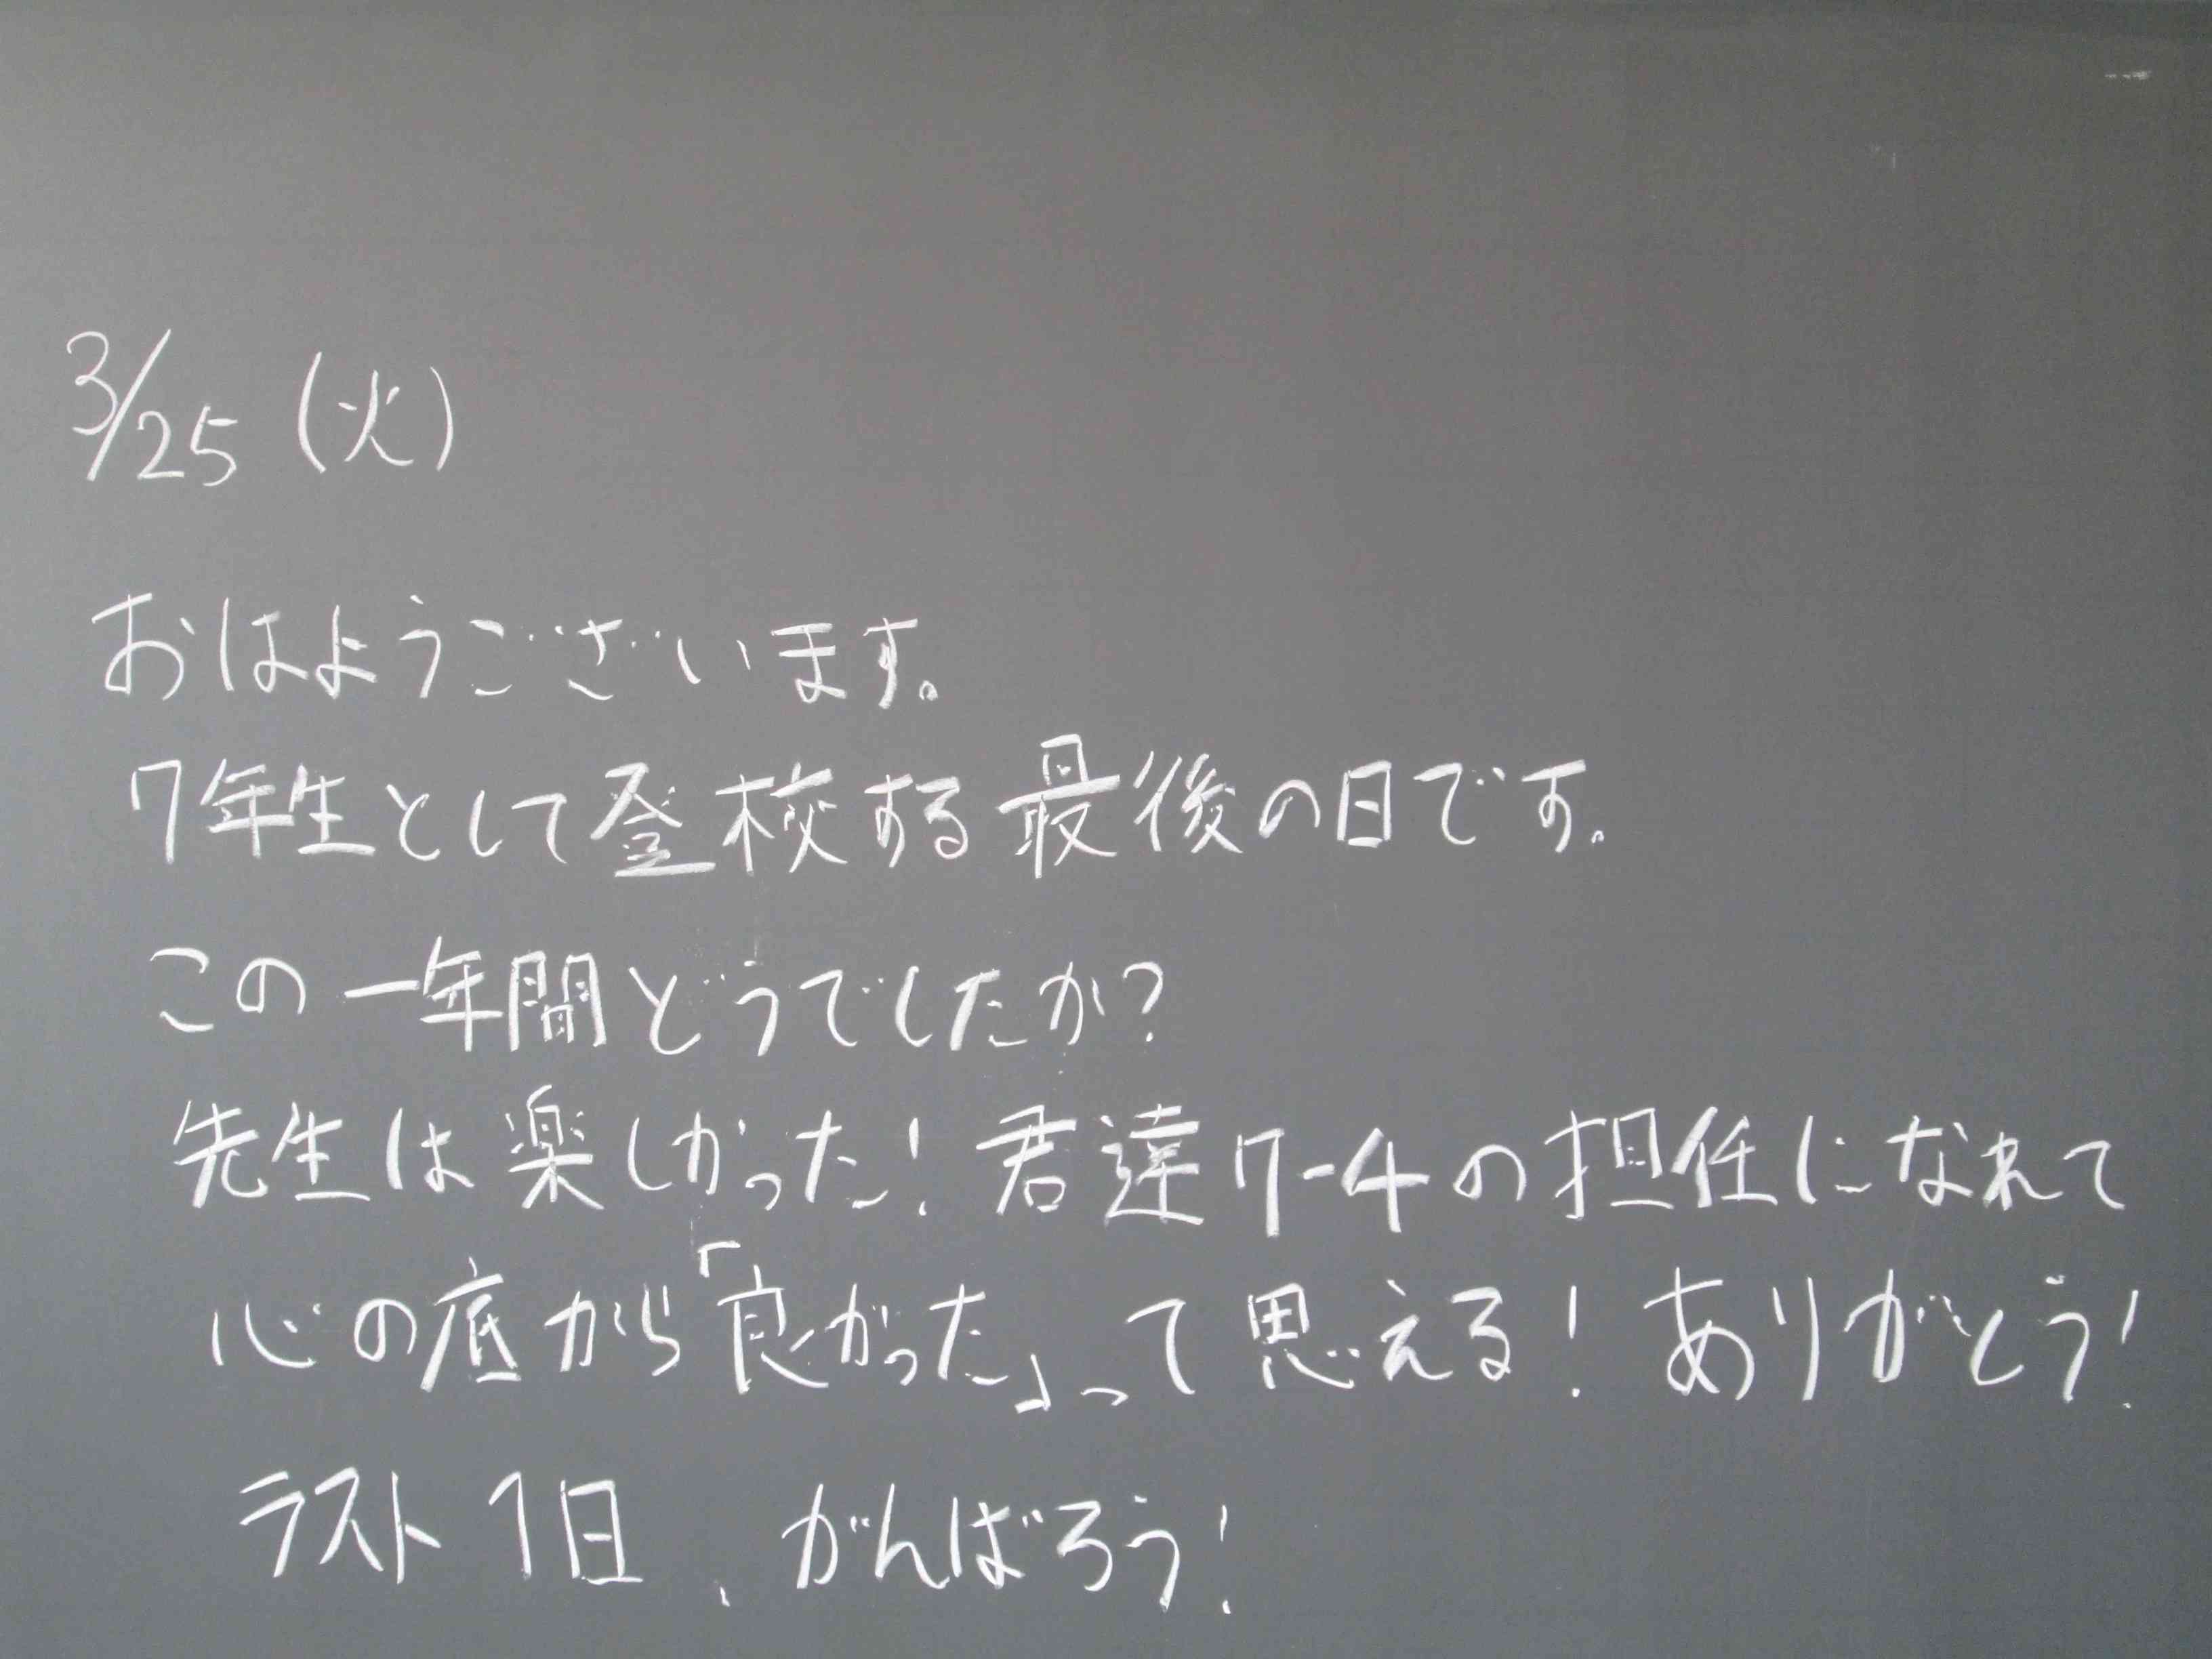 3/25 (火)
おはようございます。
7年生として登校する最後の日です。
この一年間どうでしたか?
先生は楽しかった!君達7-4の担任になれて
心の底から「良かった」って思える!ありがとう!
ラスト1日、がんばろう!